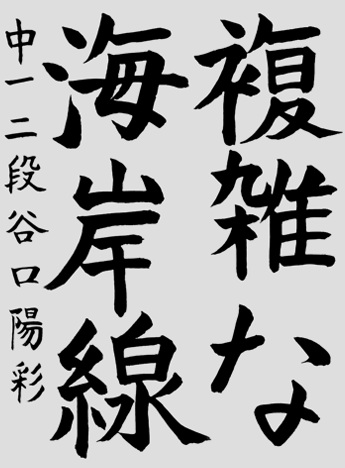 複雑な
海岸線
中一二段谷口陽彩